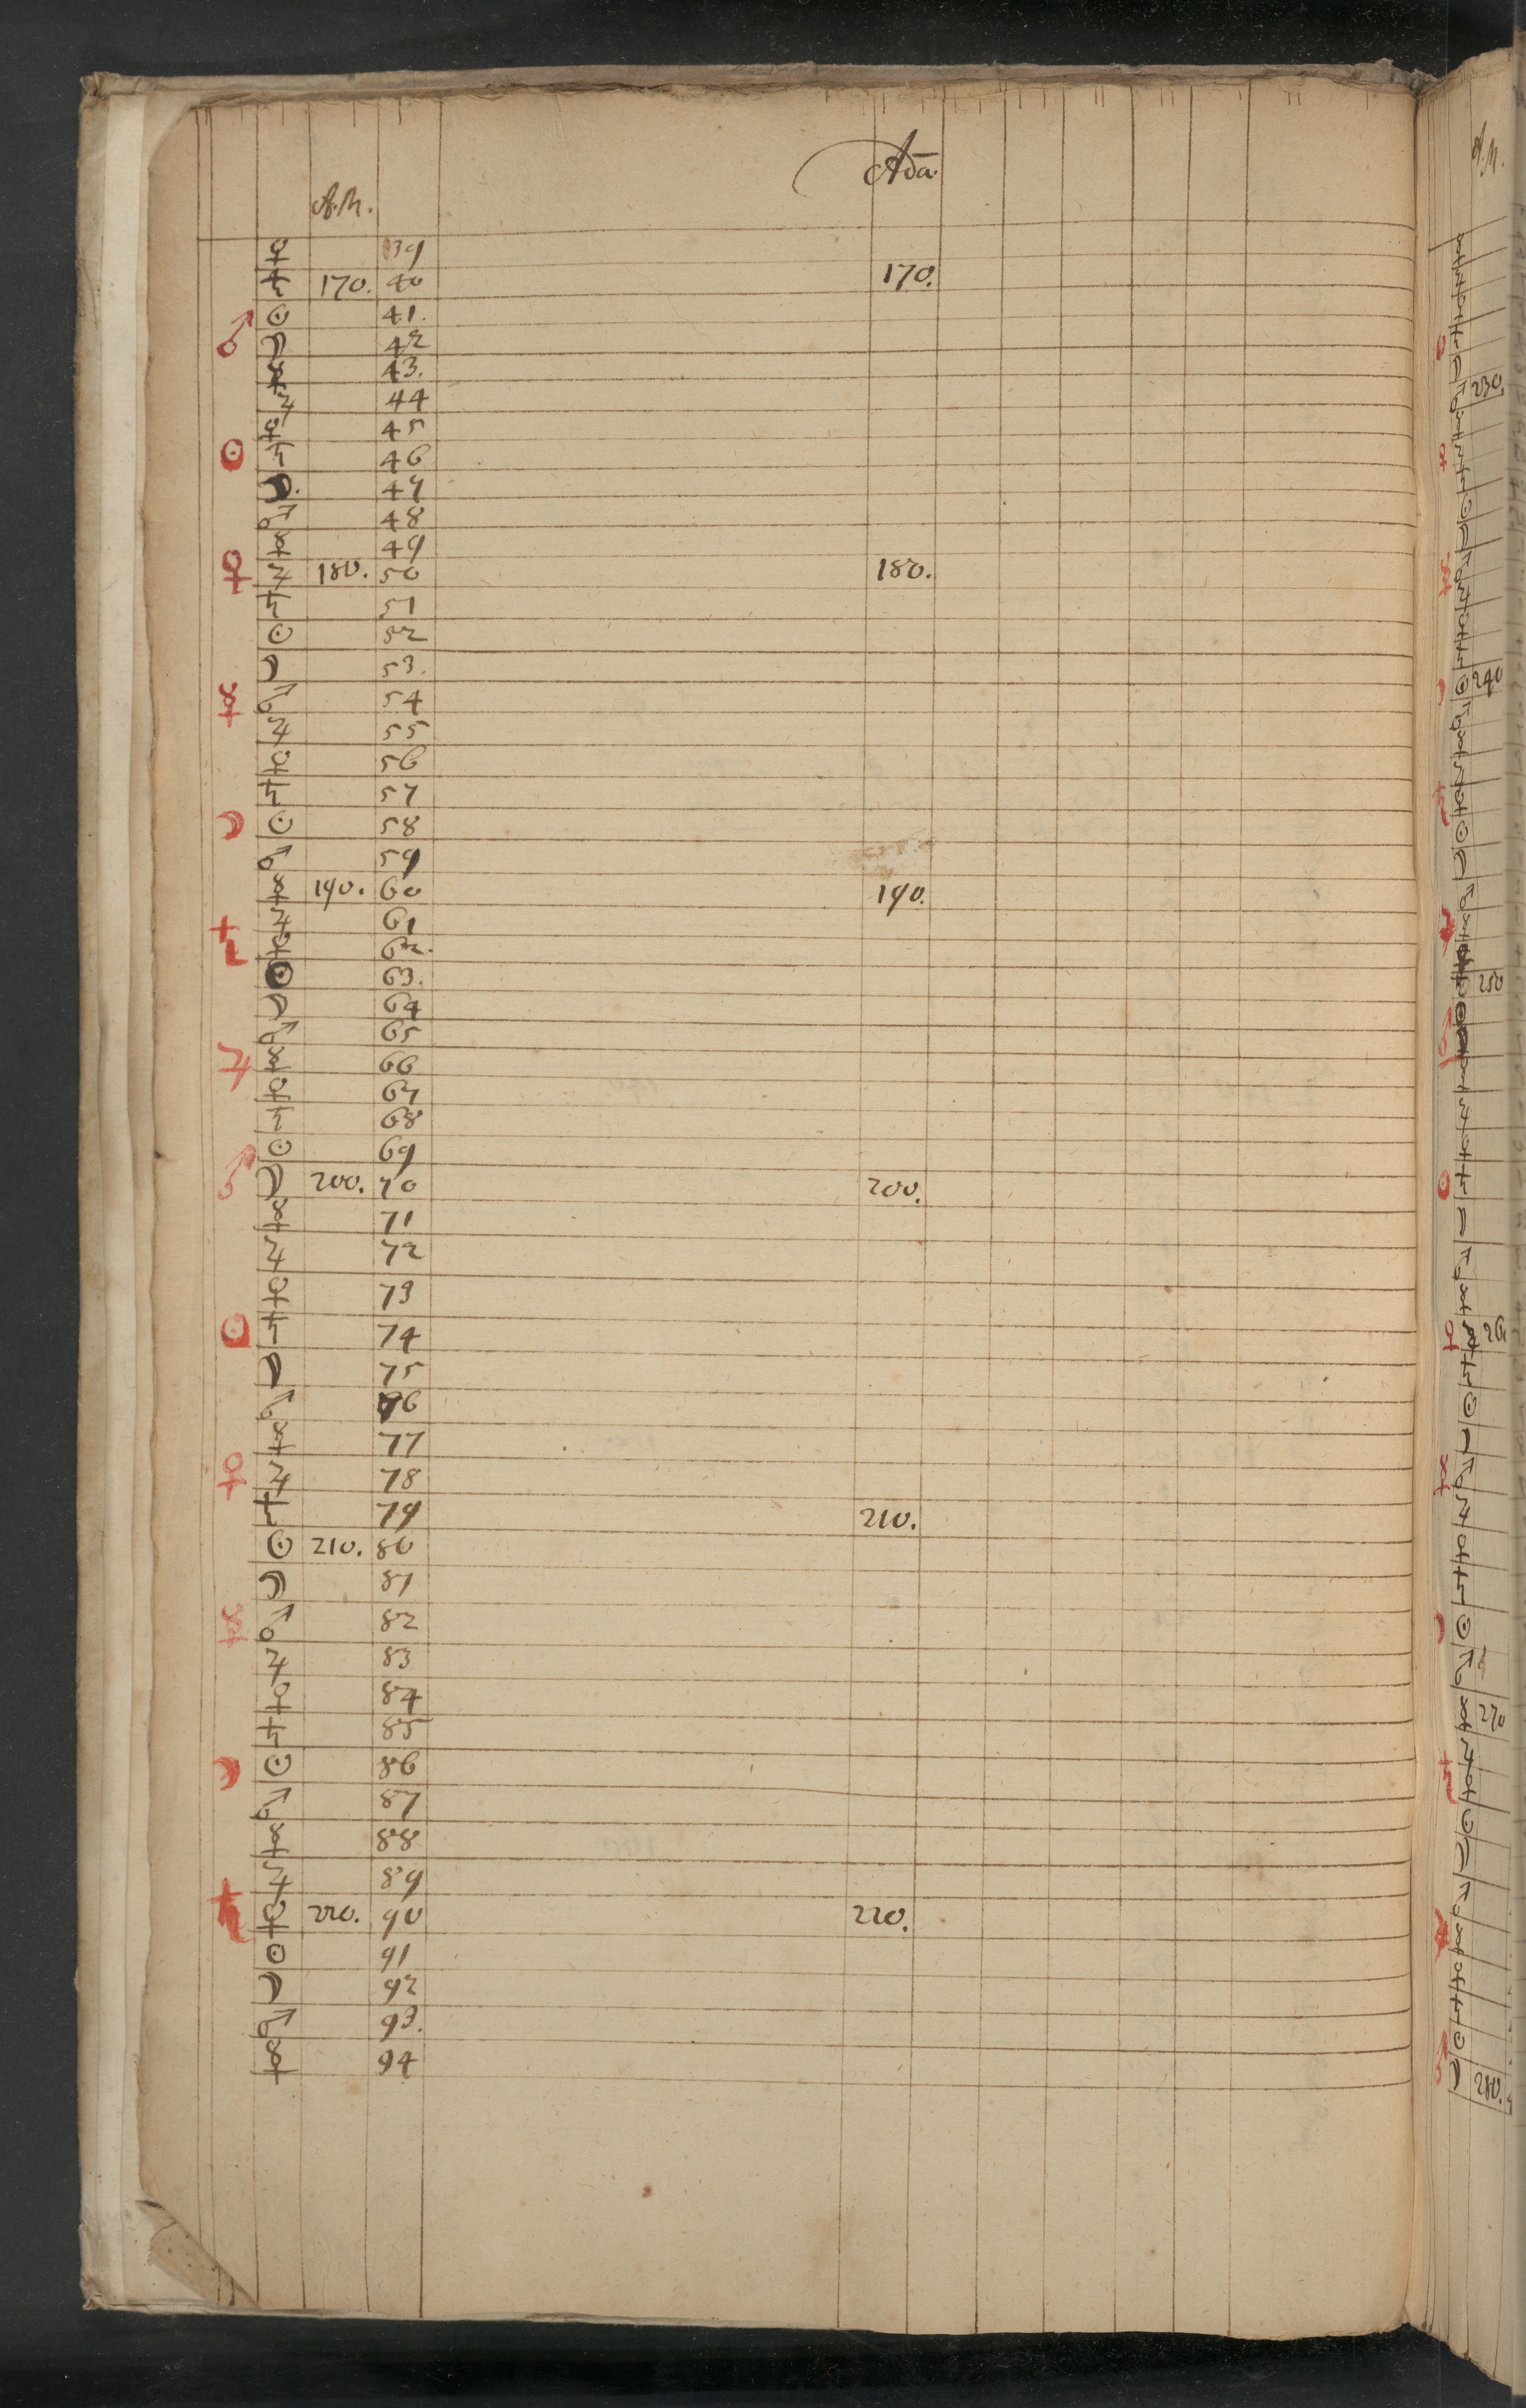 Adā.
A.M.
♀ 39
♄ 170. 40 170.
♂ ☉ 41.
☽ 42
☿ 43.
♃ 44
♀ 45
☉ ♄ 46
☽. 47
♂ 48
☿ 49
♀ ♃ 180. 50 180.
♄ 51
☉ 52
☽ 53.
☿ ♂ 54
♃ 55
♀ 56
♄ 57
☽ ☉ 58
♂ 59
☿ 190. 60 190.
♄ ♃ 61
♀ 62.
☉ 63.
☽ 64
♂ 65
♃ ☿ 66
♀ 67
♄ 68
☉ 69
♂ ☽ 200. 70 200.
☿ 71
♃ 72
♀ 73
☉ ♄ 74
☽ 75
♂ 76
☿ 77
♀ ♃ 78
♄ 79 210.
☉ 210. 80
☽ 81
☿ ♂ 82
♃ 83
♀ 84
♄ 85
☽ ☉ 86
♂ 87
☿ 88
♃ 89
♄ ♀ 220. 90 220.
☉ 91
☽ 92
♂ 93.
☿ 94
A.M.
230
240
250
26
270
280.